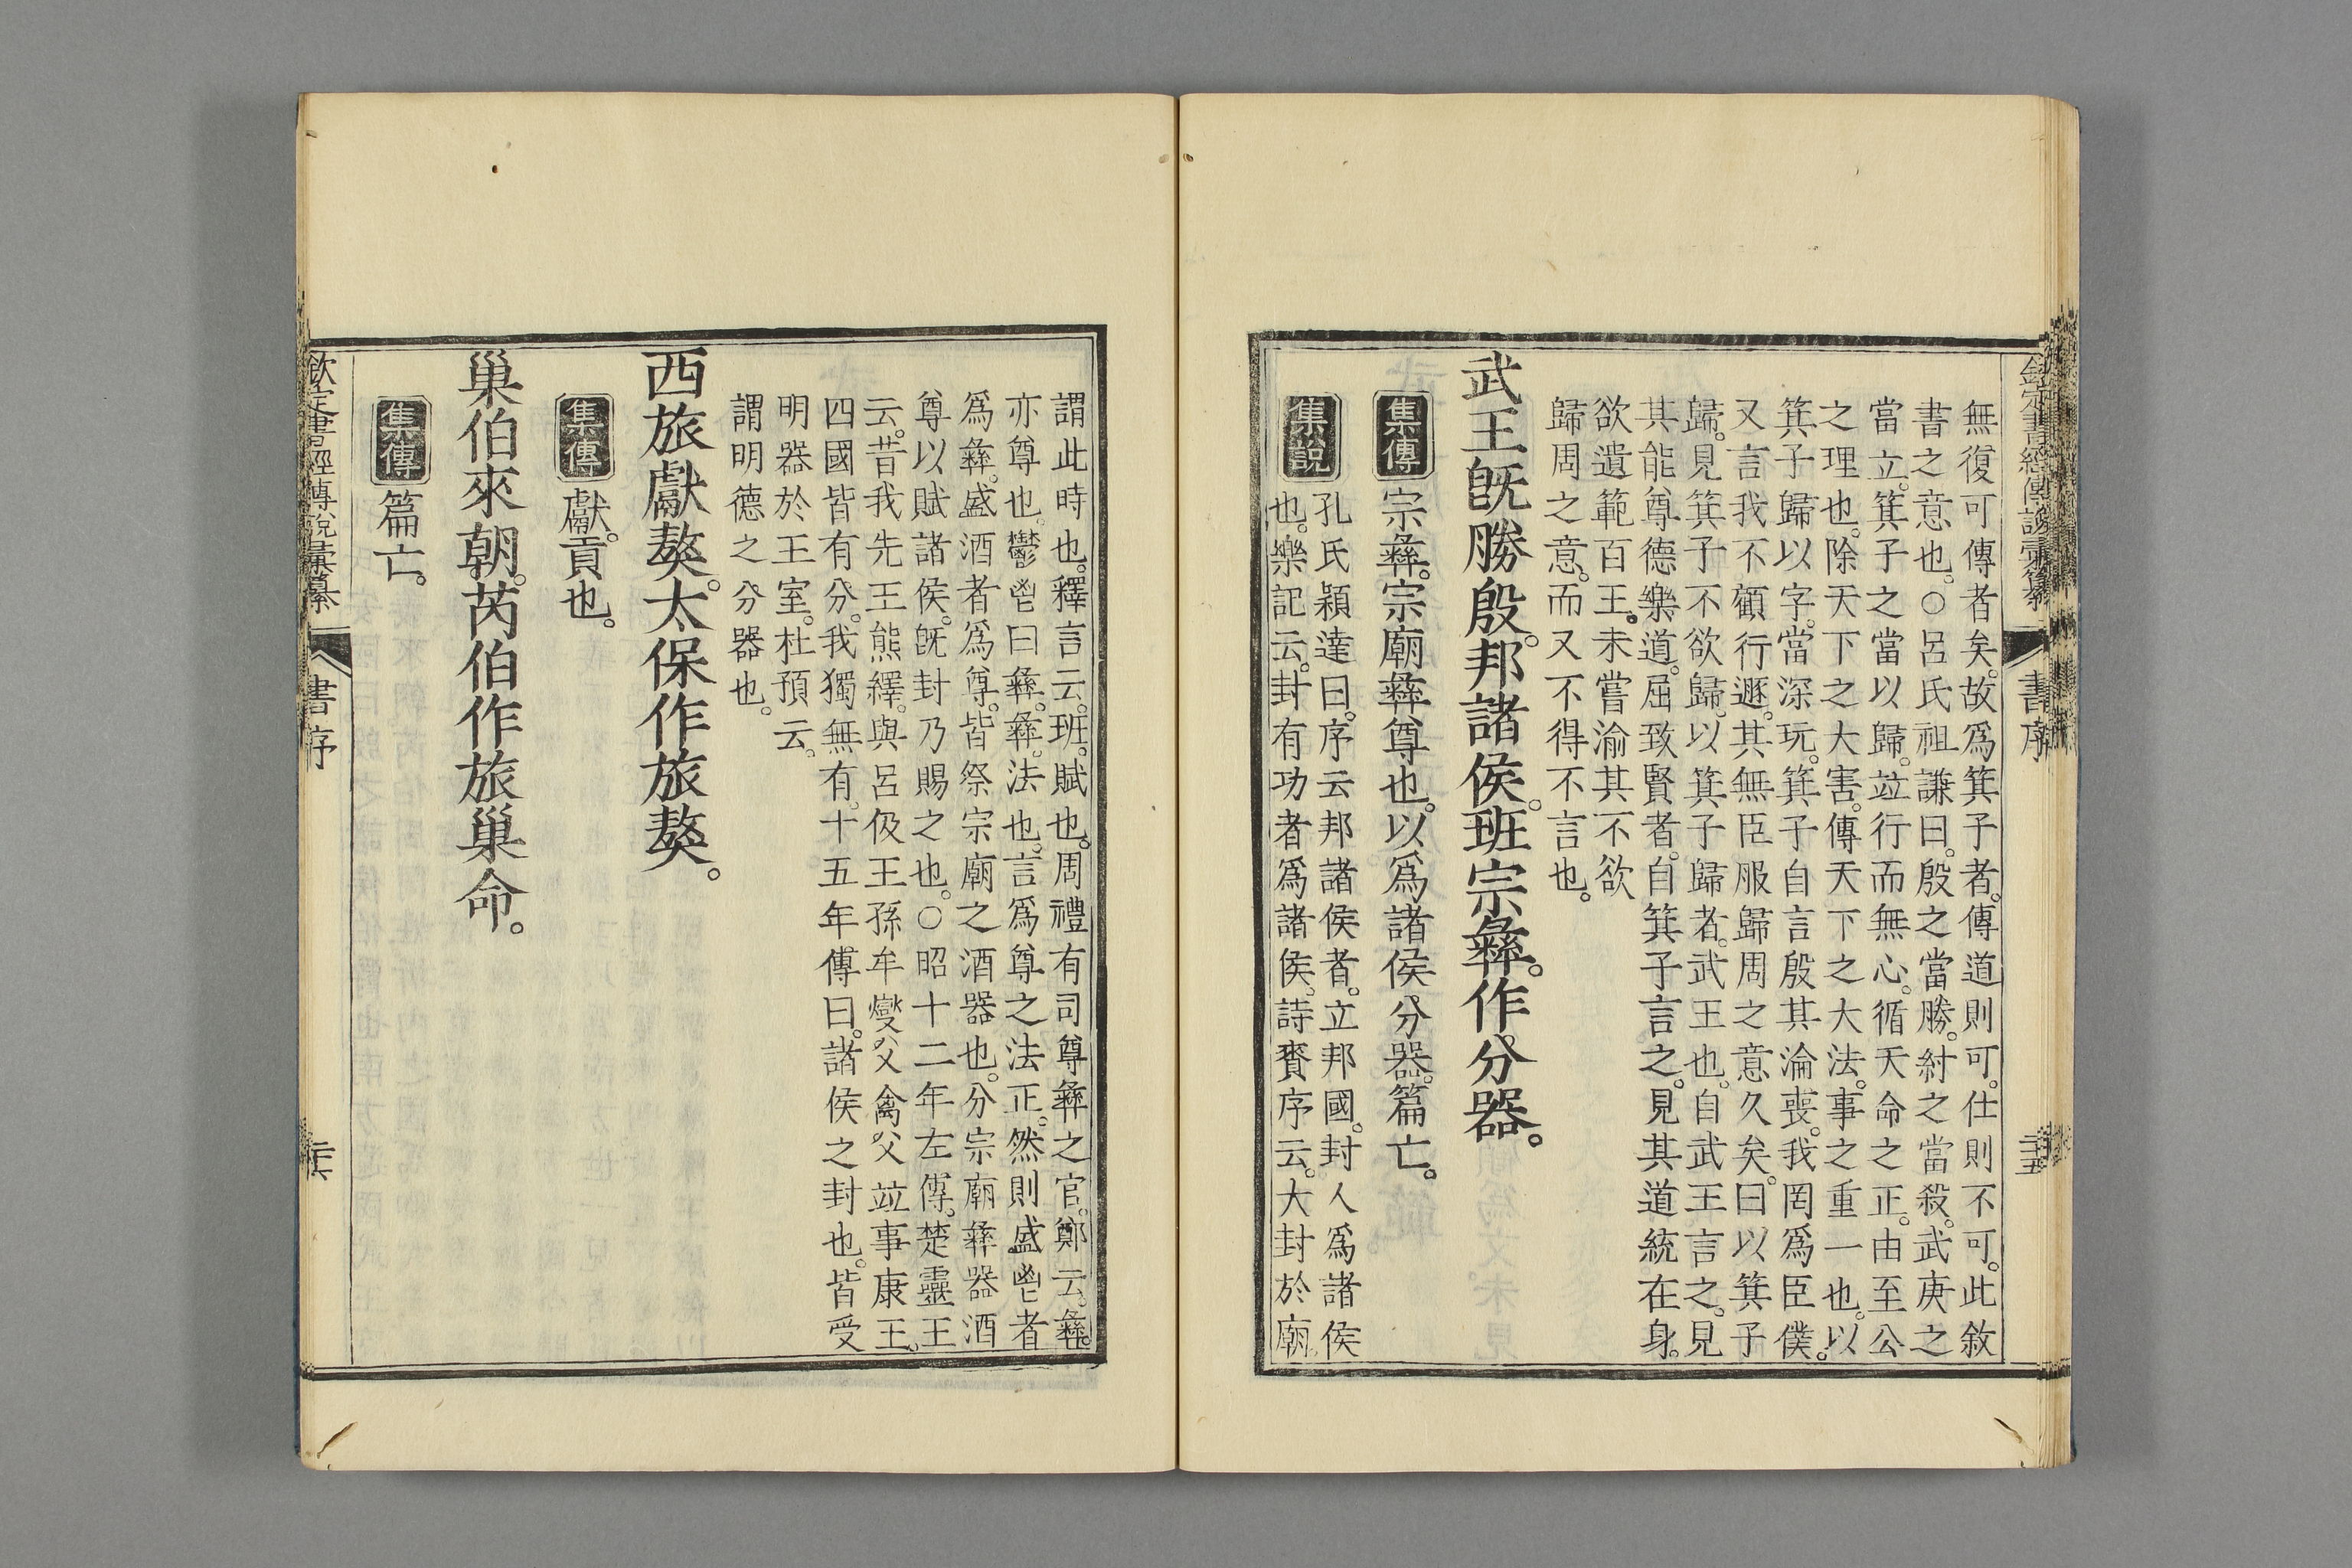 欽定書經傳說彙纂 書序 三十五
無復可傳者矣。故爲箕子者。傳道則可。仕則不可。此敘
書之意也。○呂氏祖謙曰。殷之當勝。紂之當殺。武庚之
當立。箕子之當以歸。竝行而無心。循天命之正。由至公
之理也。除天下之大害。傳天下之大法。事之重一也。以
箕子歸以字。當深玩。箕子自言殷其淪喪。我罔爲臣僕。
又言我不顧行遯。其無臣服歸周之意久矣。曰以箕子
歸。見箕子不欲歸。以箕子歸者。武王也。自武王言之。見
其能尊德樂道。屈致賢者。自箕子言之。見其道統在身。
欲遺範百王。未嘗渝其不欲
歸周之意。而又不得不言也。
武王旣勝殷。邦諸侯。班宗彝。作分器。
集傳 宗彝。宗廟彝尊也。以爲諸侯分器。篇亡。
集說 孔氏穎達曰。序云邦諸侯者。立邦國。封人爲諸侯
也。樂記云。封有功者爲諸侯。詩賚序云。大封於廟。
謂此時也。釋言云。班。賦也。周禮有司尊彝之官。鄭云。彝。
亦尊也。鬱鬯曰彝。彝。法也。言爲尊之法正。然則盛鬯者
爲彝。盛酒者爲尊。皆祭宗廟之酒器也。分宗廟彝器酒
尊以賦諸侯。旣封乃賜之也。○昭十二年左傳。楚靈王
云。昔我先王熊繹。與呂伋王孫牟燮父禽父竝事康王。
四國皆有分。我獨無有。十五年傳曰。諸侯之封也。皆受
明器於王室。杜預云。
謂明德之分器也。
西旅獻獒。太保作旅獒。
集傳 獻。貢也。
巢伯來朝。芮伯作旅巢命。
集傳 篇亡。
欽定書經傳說彙纂 書序 三十六